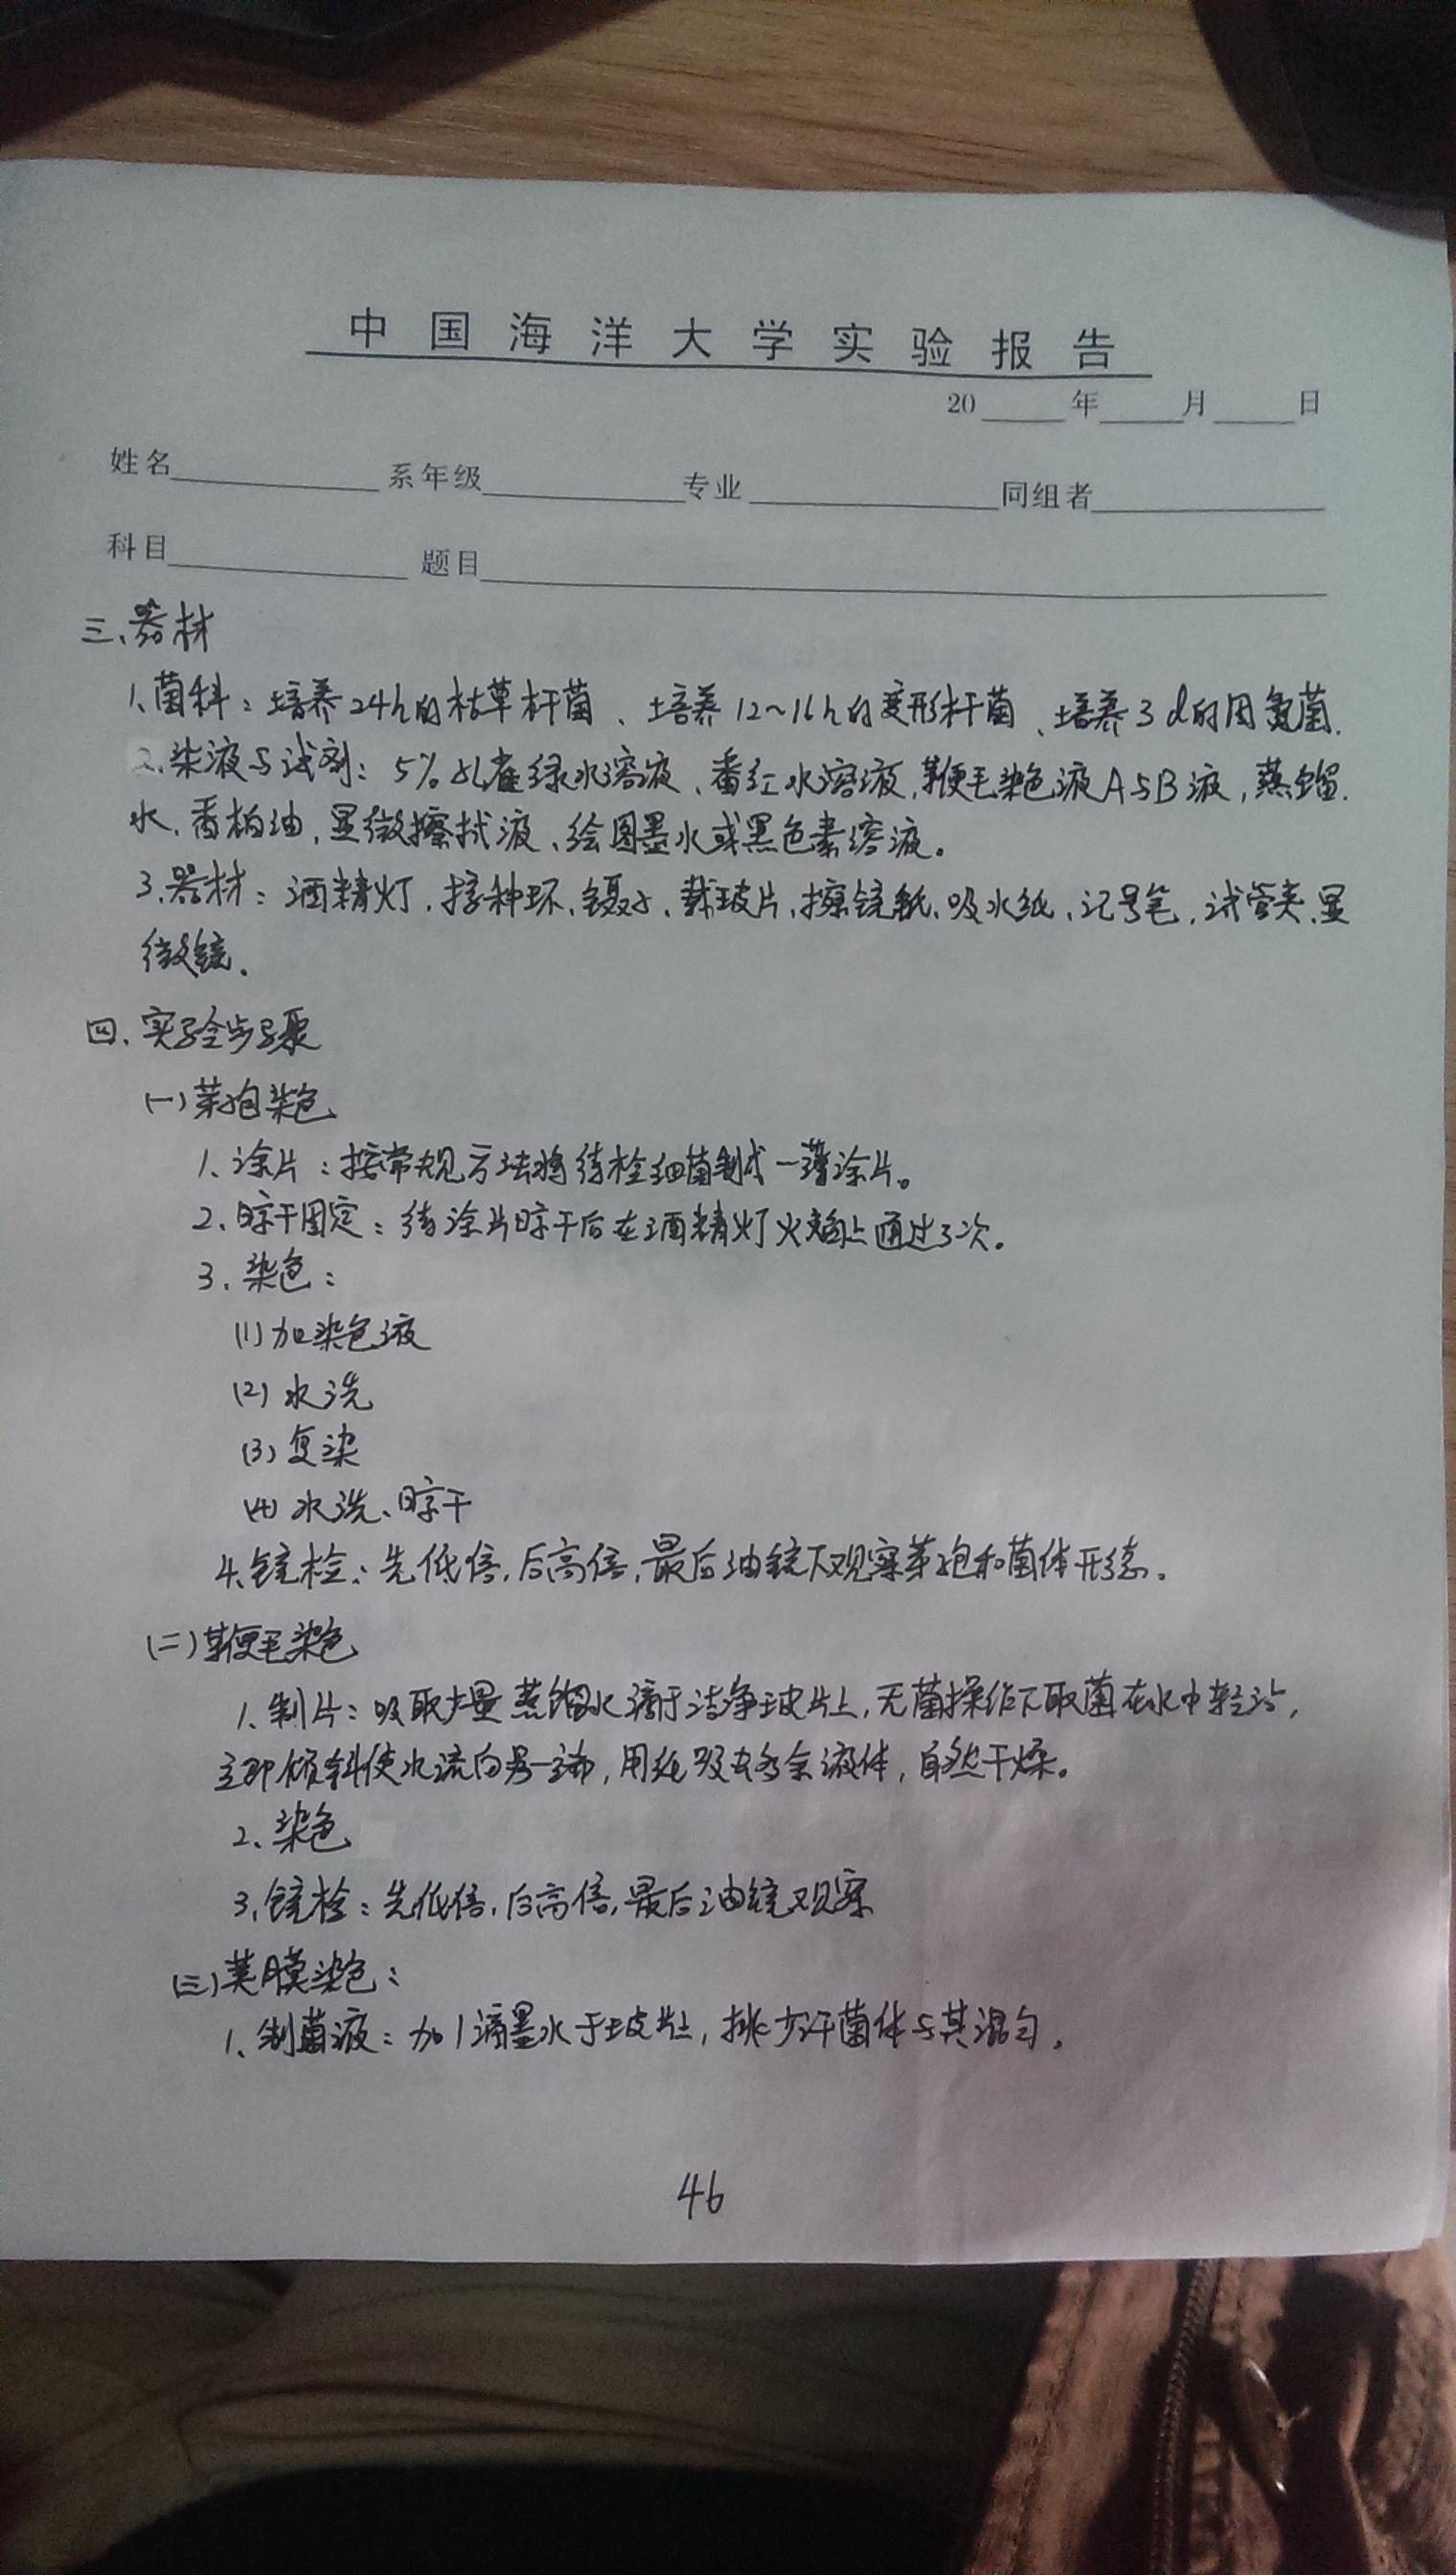 中国海洋大学实验报告
20 年 月 日
姓名 系年级 专业 同组者
科目 题目
三、器材
1、菌科：培养24h的枯草杆菌、培养12~16h的变形杆菌、培养3d的固氮菌.
2、染液与试剂：5%孔雀绿水溶液、番红水溶液，鞭毛染色液A与B液，蒸馏
水、香柏油，显微擦拭液、绘图墨水或黑色素溶液。
3、器材：酒精灯，接种环、镊子、载玻片、擦镜纸、吸水纸、记号笔，试管夹、显
微镜.
四、实验步骤
(一)芽孢染色
1、涂片：按常规方法将待检细菌制成一薄涂片。
2、晾干固定：待涂片晾干后在酒精灯火焰上通过3次.
3、染色：
(1)加染色液
(2)水洗
(3)复染
(4)水洗、晾干
4、镜检：先低倍，后高倍，最后油镜下观察芽孢和菌体形态.
(二)鞭毛染色
1、制片：吸取少量蒸馏水滴于洁净玻片上，无菌操作下取菌在水中轻沾，
立即倾斜使水流向另一端，用纸吸去多余液体，自然干燥。
2、染色
3、镜检：先低倍，后高倍，最后油镜观察
(三)荚膜染色：
1、制菌液：加1滴墨水于玻片上，挑少许菌体与其混匀.
46